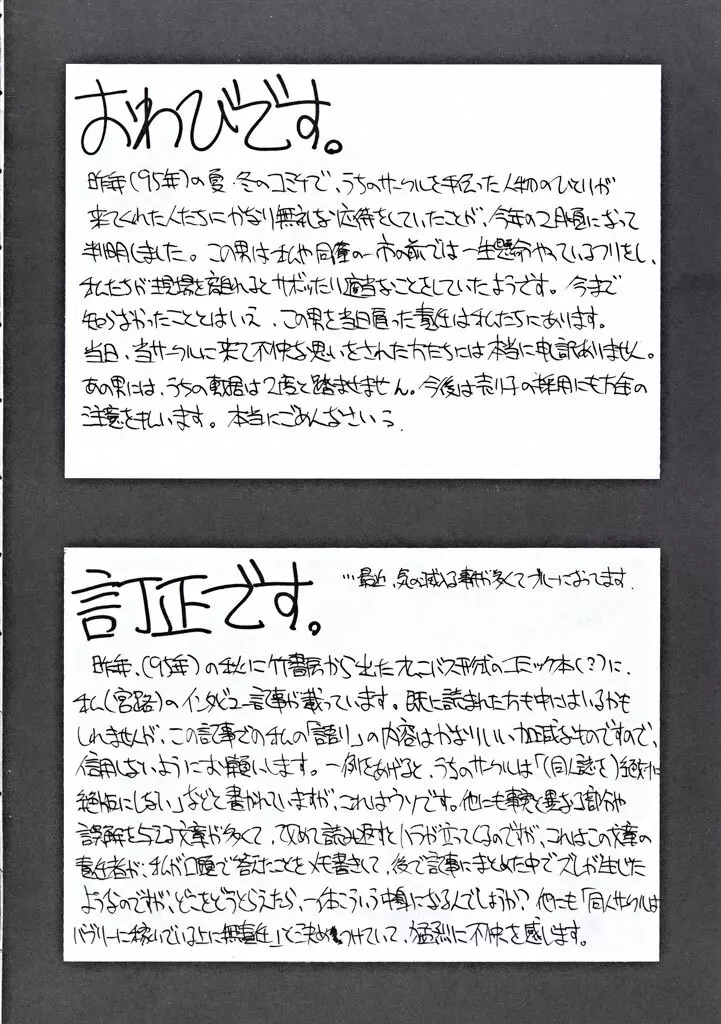 おわびです。
昨年(95年)の夏・冬のコミケで、うちのサークルを手伝った人物のひとりが
来てくれた人たちにかなり無礼な応待をしていたことが、今年の2月頃になって
判明しました。この男は私や同僚の一市の前では一生懸命やっているフリをし、
私たちが現場を離れるとサボったり適当なことをしていたようです。今まで
知らなかったこととはいえ、この男を当日雇った責任は私たちにあります。
当日、当サークルに来て不快な思いをされた方たちには本当に申し訳ありません。
あの男には、うちの敷居は2度と踏ませません。今後は売り子の採用にも万全の
注意を払います。本当にごめんなさい
訂正です。
…最近、気の滅入る事が多くてブルーになってます.
昨年、(95年)の秋に竹書房から出たオムニバス形式のコミック本(?)に、
私(宮路)のインタビュー記事が載っています。既に読まれた方も中にはいるかも
しれませんが、この記事での私の「語り」の内容はかなりいい加減なものですので、
信用しないようにお願いします。一例をあげると、うちのサークルは「(同人誌を)絶対に
絶版にしない」などと書かれていますが、これはウソです。他にも事実と異なる部分や
誤解を与える文章が多くて、改めて読み返すとハラが立ってくるのですが、これはこの文章の
責任者が、私が口頭で答えたことをメモ書きして、後で記事にまとめた中でズレが生じた
ようなのですが、どこをどうとらえたら、一体こういう中身になるんでしょうか?他にも「同人サークルは
バブリーに稼いでいる上に無責任」と決めつけていて、猛烈に不快を感じます。